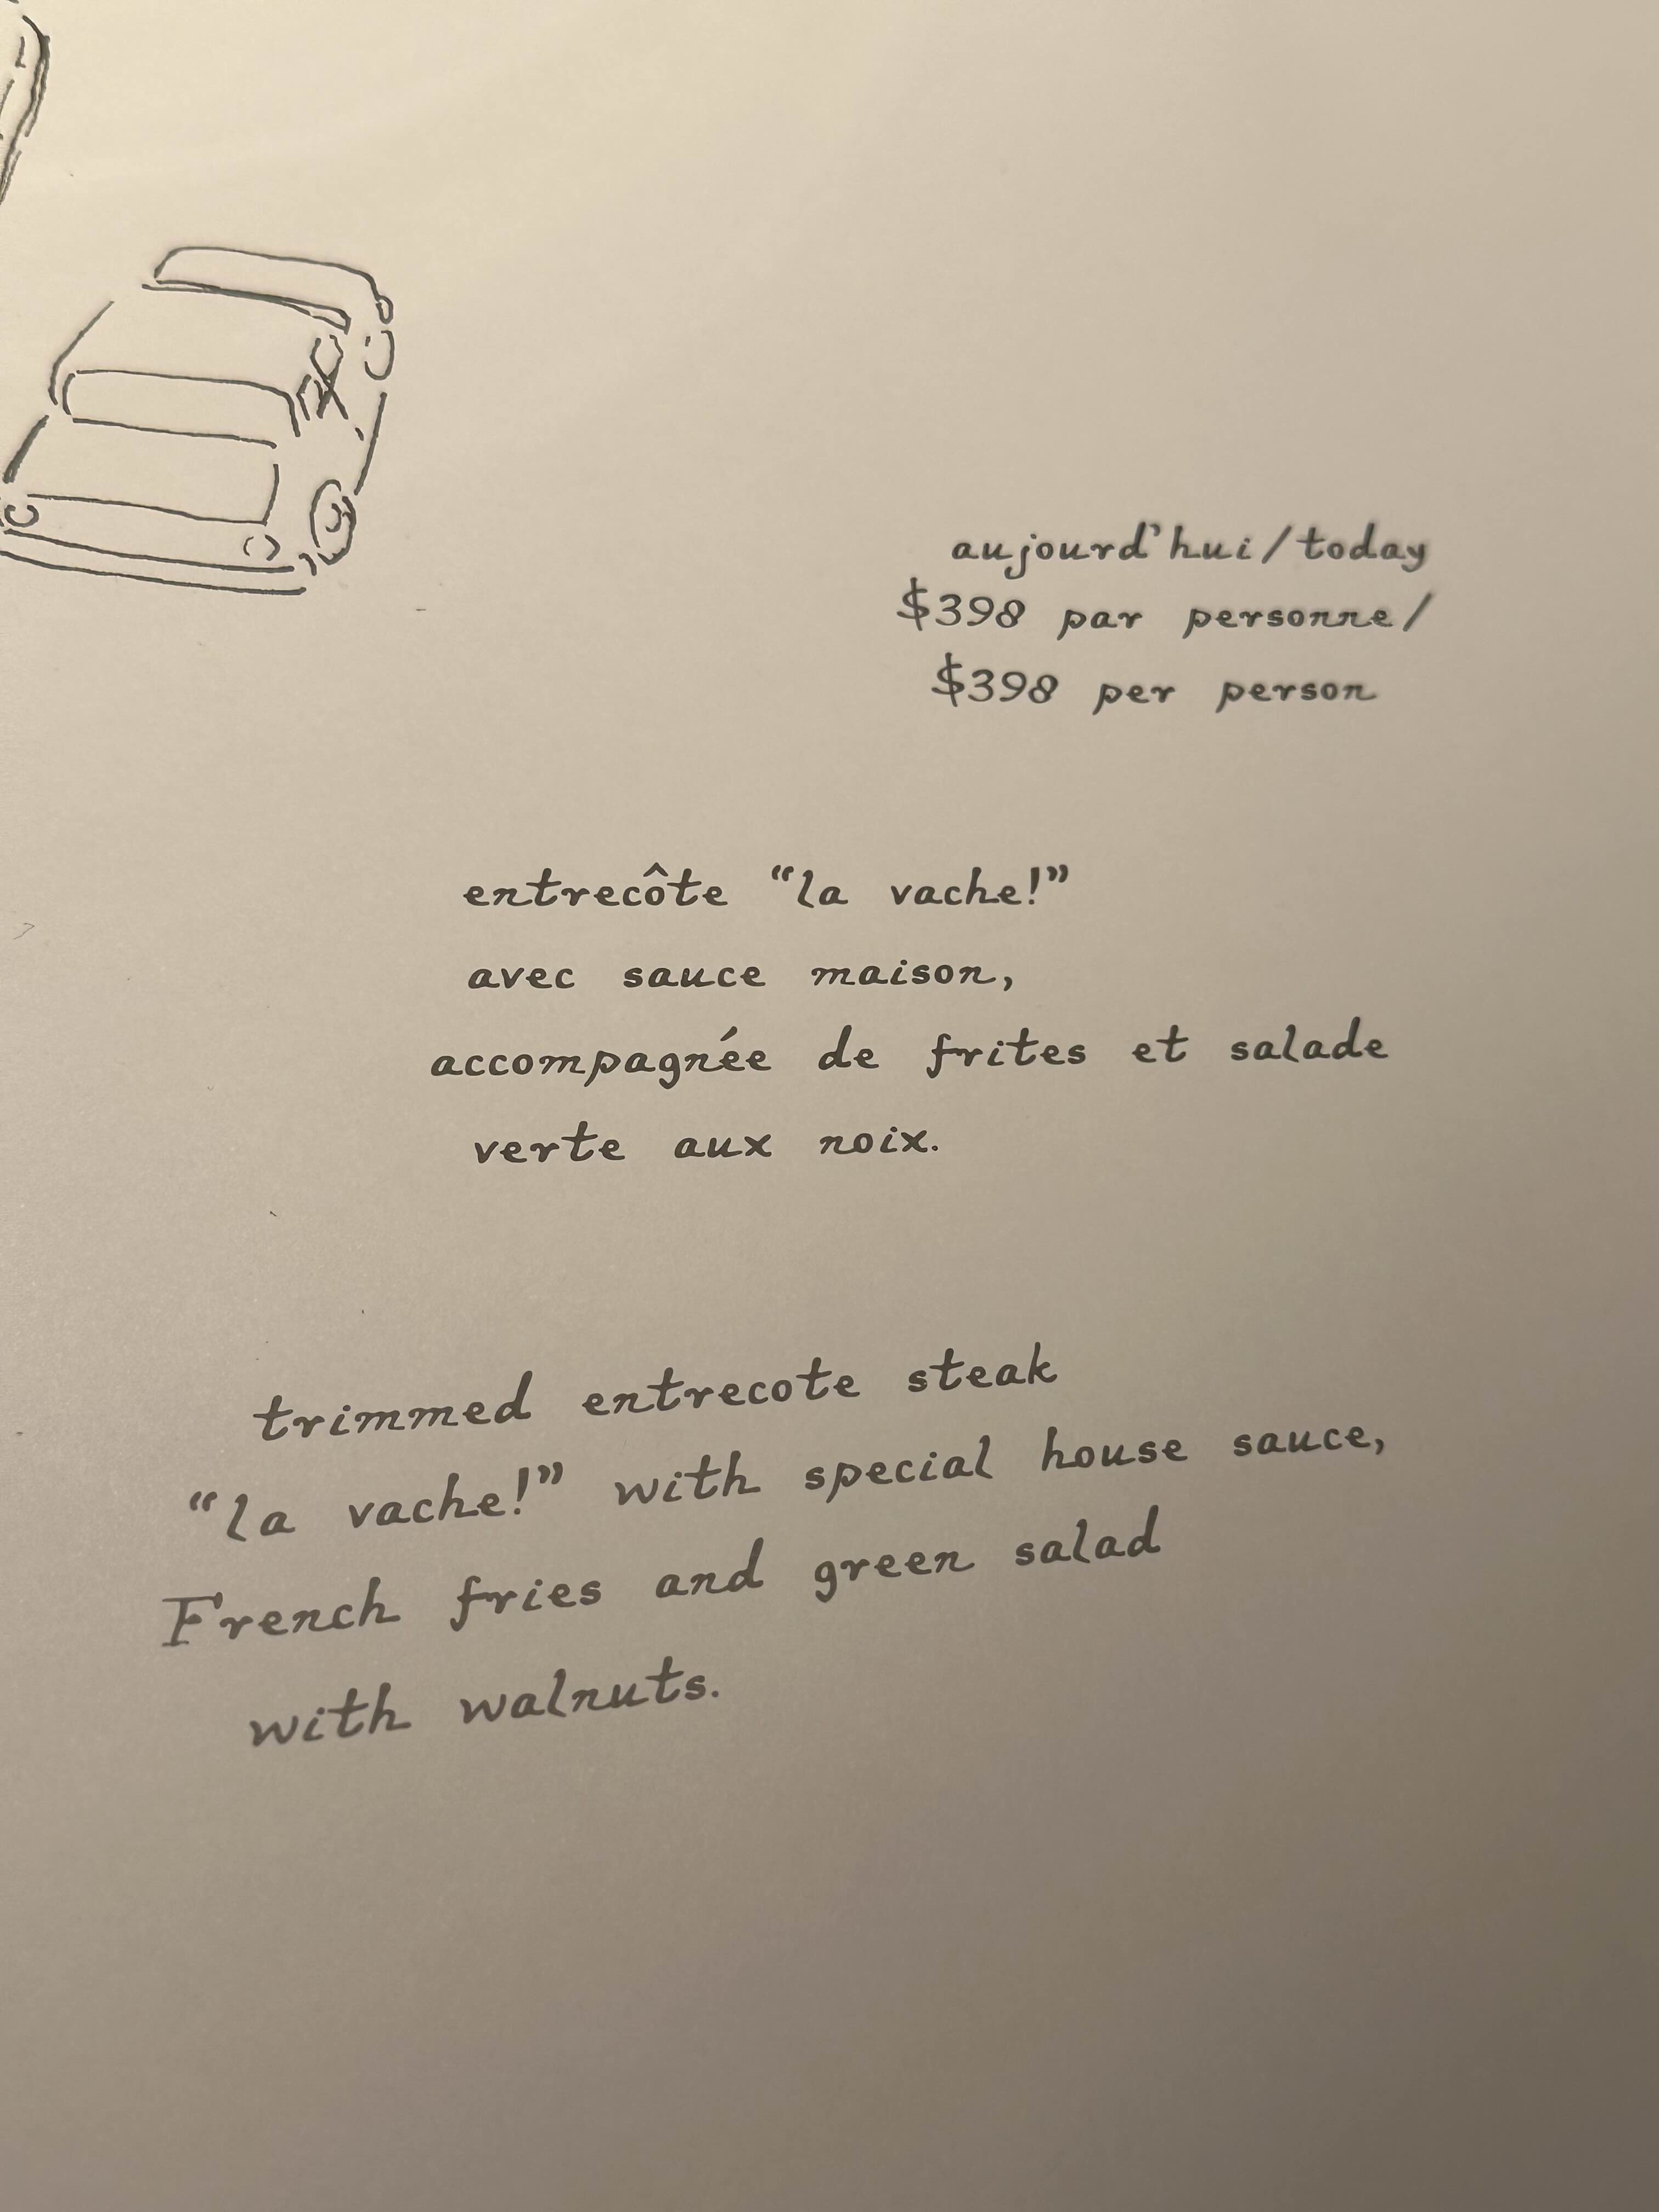 aujourd'hui/today
$398 par personne/
$398 per person
entrecôte “la vache!”
avec sauce maison,
accompagnée de frites et salade
verte aux noix.
trimmed entrecote steak
“la vache!” with special house sauce,
French fries and green salad
with walnuts.